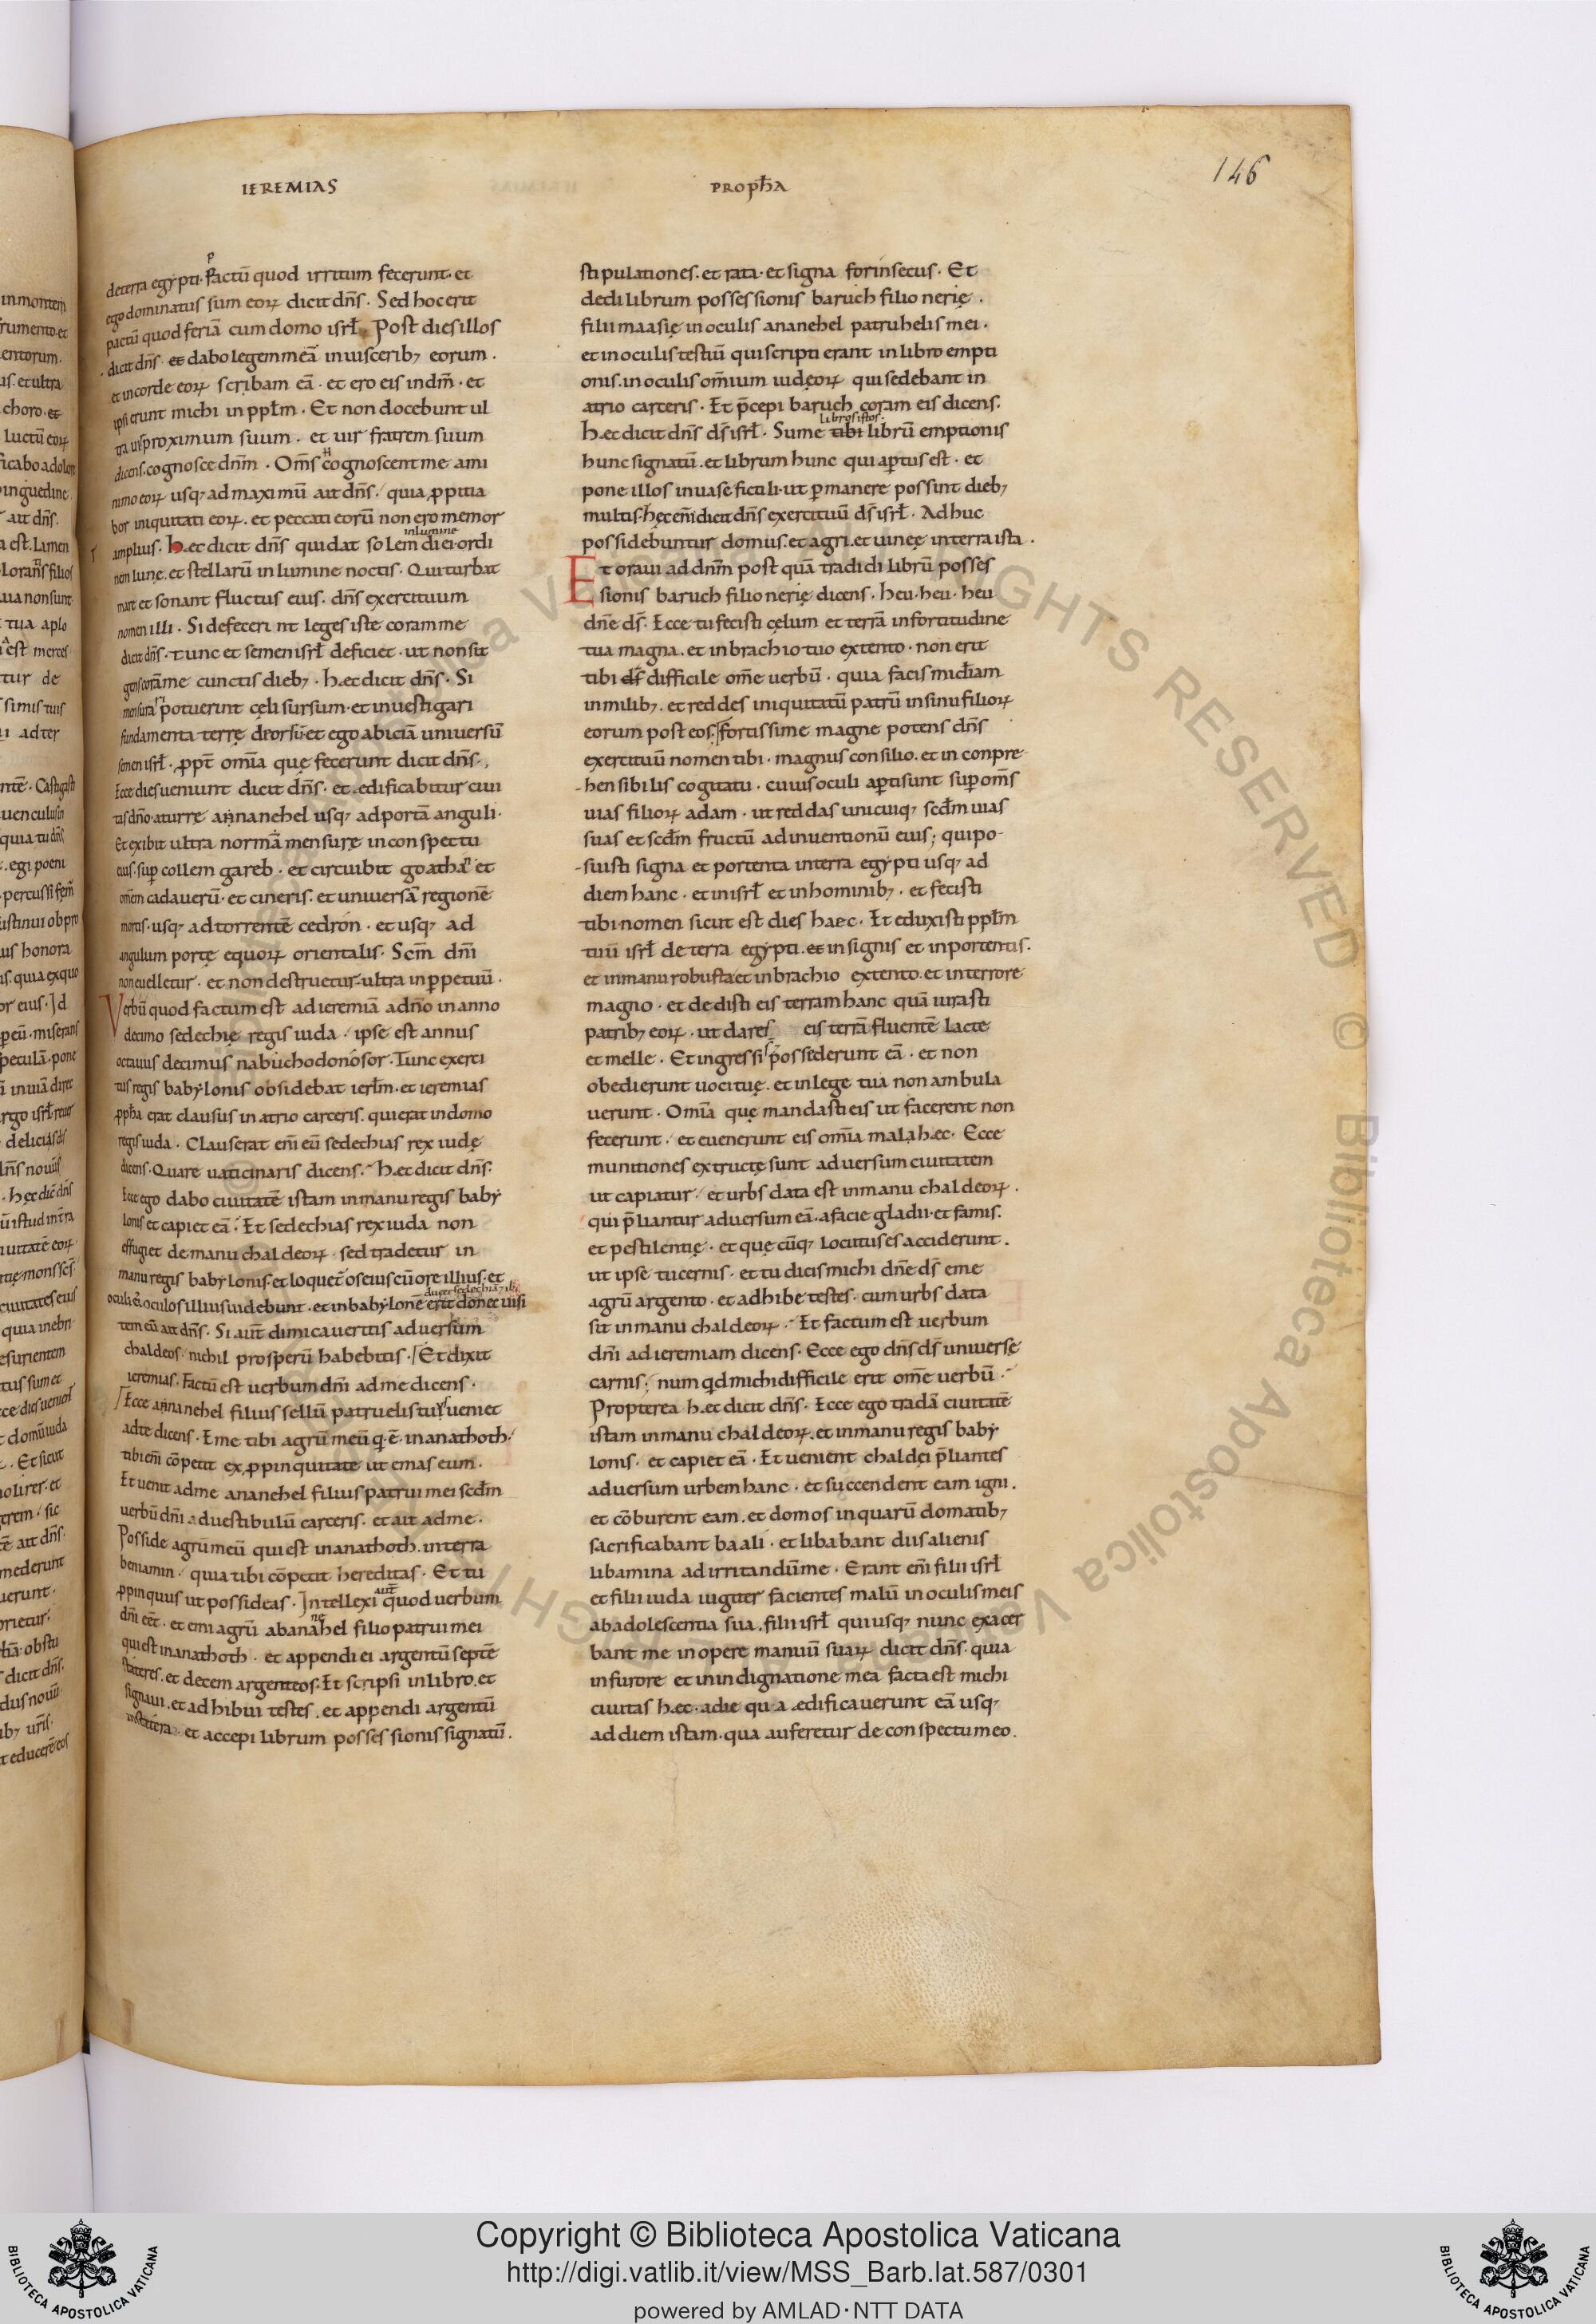 IEREMIAS
PROPHA
146
de terra egypti. pactū quod irritum fecerunt. et
ego dominatus sum eoꝝ dicit dn̄s. Sed hoc erit
pactū quod feriā cum domo isrł. Post dies illos
dicit dn̄s. dabo legem meā in uiscerib; eorum.
et in corde eoꝝ scribam eā. et ero eis in dm̄. et
ipsi erunt michi in ppłm. Et non docebunt ul
tra uir proximum suum. et uir fratrem suum
dicens. cognosce dnm̄. Om̄s cognoscent me a mi
nimo eoꝝ usq; ad maximū ait dn̄s. quia ꝓpitia
bor iniquitati eoꝝ. et peccati eorū non ero memor
amplius. Hæc dicit dn̄s qui dat solem in lumine diei. ordi
nem lunę. et stellarū in lumine noctis. Qui turbat
mare et sonant fluctus eius. dn̄s exercituum
nomen illi. Si defecerint leges iste coram me
dicit dn̄s. tunc et semen isrł deficiet. ut non sit
gens coram me cunctis dieb;. hæc dicit dn̄s. Si
mensurari potuerint cęli sursum. et inuestigari
fundamenta terrę deorsū. et ego abiciā uniuersū
semen isrł. ꝓpt̄ om̄ia quę fecerunt dicit dn̄s.
Ecce dies ueniunt dicit dn̄s. et ædificabitur ciui
tis dn̄o. a turre annanehel usq; ad portā anguli.
Et exibit ultra normā mensurę in conspectu
eius. sup collem gareb. et circuibit goatha. et
omēm cadauerū. et cineris. et uniuersā regionē
mortis. usq; ad torrentē cedron. et usq; ad
angulum portę equoꝝ orientalis. Scm̄ dn̄i
non euelletur. et non destruetur ultra in ꝑpetuū.
Verbū quod factum est ad ieremiā a dn̄o in anno
decimo sedechię regis iuda. ipse est annus
octauus decimus nabuchodonosor. Tunc exerci
tus regis babylonis obsidebat ierłm. et ieremias
ꝓpħa erat clausus in atrio carceris. qui erat in domo
regis iuda. Clauserat em̄ eū sedechias rex iudę
dicens. Quare uaticinaris dicens. Hæc dicit dn̄s.
Ecce ego dabo ciuitatē istam in manu regis baby
lonis et capiet eā. Et sedechias rex iuda non
effugiet de manu chaldeoꝝ. sed tradetur in
manu regis babylonis. et loquet̄ os eius cū ore illius. et
oculi ei oculos illius uidebunt. et in babylonē erit donec uisi
tem eū ait dn̄s. Si aut̄ dimicaueritis aduersum
chaldeos. nichil prosperū habebitis. Et dixit
ieremias. Factū est uerbum dn̄i ad me dicens.
Ecce annanehel filius sellū patruelis tuus ueniet
ad te dicens. Eme tibi agrū meū q̄. ē. in anathoth.
tibi em̄ cōpetit ex ꝓpinquitate ut emas eum.
Et uenit ad me ananehel filius patrui mei secd̄m
uerbū dn̄i ad uestibulū carceris. et ait ad me.
Posside agrū meū qui est in anathoth. in terra
beniamin. quia tibi cōpetit hereditas. Et tu
ꝓpinquus ut possideas. Intellexi aut̄ quod uerbum
dn̄i eēt. et emi agrū ab ananehel filio patrui mei
qui est in anathoth. et appendi ei argentū septē
stateres. et decem argenteos. Et scripsi in libro. et
signaui. et adhibui testes. et appendi argentū
in statera. et accepi librum possessionis signatū.
stipulationes. et rata. et signa forinsecus. Et
dedi librum possessionis baruch filio nerię.
filii maasię in oculis ananehel patruhelis mei.
et in oculis testiū qui scripti erant in libro empti
onis. in oculis om̄ium iudęoꝝ qui sedebant in
atrio carceris. Et p̄cepi baruch coram eis dicens.
hæc dicit dn̄s ds̄ isrł. Sume libros istos. tibi librū emptionis
hunc signatū. et librum hunc qui aptus est. et
pone illos in uase fictili. ut ꝑmanere possint dieb;
multis. hęc em̄ dicit dn̄s exercituū ds̄ isrł. Adhuc
possidebuntur domus. et agri. et uineę in terra ista.
Et oraui ad dnm̄ post quā tradidi librū posses
sionis baruch filio nerię dicens. heu. heu. heu
dn̄e ds̄. Ecce tu fecisti cęlum et terrā in fortitudine
tua magna. et in brachio tuo extento. non erit
tibi difficile om̄e uerbū. quia facis mīdiam
in milib;. et reddes iniquitatū patrū in sinu filioꝝ
eorum post eos. fortissime magne potens dn̄s
exercituū nomen tibi. magnus consilio. et in conpre
hensibilis cogitatu. cuius oculi apti sunt sup om̄s
uias filioꝝ adam. ut reddas unicuiq; secd̄m uias
suas et secd̄m fructū adinuentionū eius; qui po-
suisti signa et portenta in terra egypti usq; ad
diem hanc. et in isrł et in hominib;. et fecisti
tibi nomen sicut est dies haec. Et eduxisti ppłm
tuū isrł de terra egypti. et in signis et in portentis.
et in manu robusta et in brachio extento. et in terrore
magno. et dedisti eis terram hanc quā iurasti
patrib; eoꝝ. ut dares eis terrā fluentē lacte
et melle. Et ingressi possederunt eā. et non
obedierunt uoci tuę. et in lege tua non ambula
uerunt. Om̄ia quę mandasti eis ut facerent non
fecerunt. et euenerunt eis om̄ia mala hæc. Ecce
munitiones extructę sunt aduersum ciuitatem
ut capiatur. et urbs data est in manu chaldeoꝝ.
qui p̄liantur aduersum eā. a facie gladii. et famis.
et pestilentię. et quęcūq; locutus es acciderunt.
ut ipse tu cernis. et tu dicis michi dn̄e ds̄ eme
agrū argento. et adhibe testes. cum urbs data
sit in manu chaldeoꝝ. Et factum est uerbum
dn̄i ad ieremiam dicens. Ecce ego dn̄s ds̄ uniuersę
carnis. num qd michi difficile erit om̄e uerbū.
Propterea hæc dicit dn̄s. Ecce ego tradā ciuitatē
istam in manu chaldeoꝝ. et in manu regis baby
lonis. et capiet eā. Et uenient chaldęi p̄liantes
aduersum urbem hanc. et succendent eam igni.
et cōburent eam. et domos in quarū domatib;
sacrificabant baali. et libabant diis alienis
libamina ad irritandūme. Erant em̄ filii isrł
et filii iuda iugiter facientes malū in oculis meis
ab adolescentia sua. filii isrł qui usq; nunc exacer
bant me in opere manuū suaꝝ dicit dn̄s. quia
in furore et in indignatione mea facta est michi
ciuitas hæc. a die qua ædificauerunt eā usq;
ad diem istam. qua auferetur de conspectu meo.
Copyright © Biblioteca Apostolica Vaticana
http://digi.vatlib.it/view/MSS_Barb.lat.587/0301
powered by AMLAD·NTT DATA